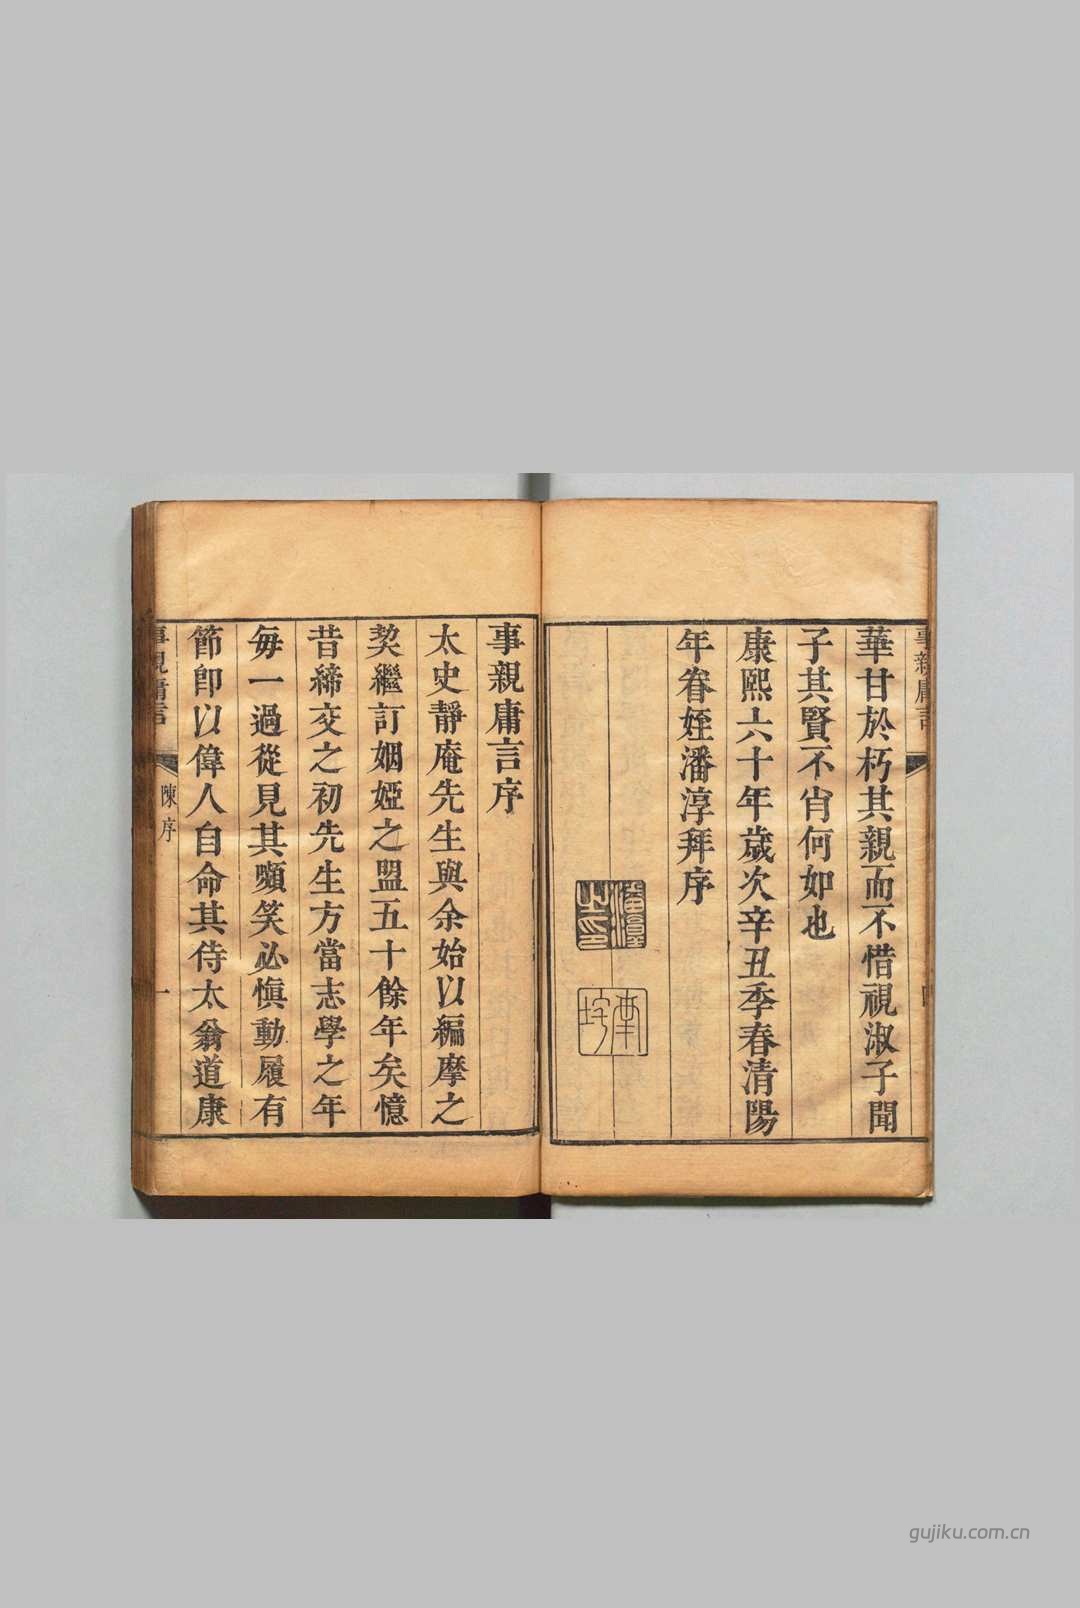 事親庸言
華甘於朽其親而不惜視淑子聞
子其賢不肖何如也
康熙六十年歲次辛丑季春清陽
年眷姪潘淳拜序
潘淳之印
事親庸言序
太史靜庵先生與余始以編摩之
契繼訂姻婭之盟五十餘年矣憶
昔締交之初先生方當志學之年
每一過從見其嚬笑必慎動履有
節卽以偉人自命其侍太翁道康
事親庸言
陳序
一
gujiku.com.cn